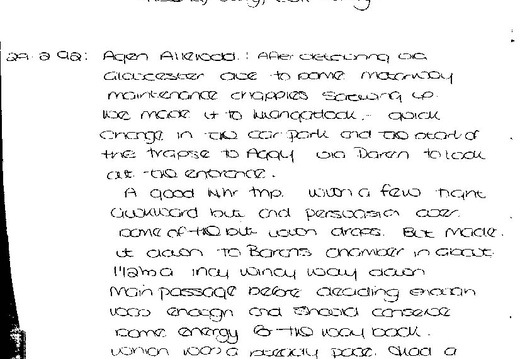 29.2.92: Agen Allwedd.: After detouring via
Gloucester due to some motorway
maintenance chappies screwing up.
We made it to Llangattock, - quick
change in the car park and the start of
the trapse to Aggy via Daren to look
at the entrance.
A good hr trip. with a few tight
awkward bits and persuasion over
some of the but drops. But made
it down to Barons chamber in about
1 1/2 hrs a incy wincy way down
Main passage before deciding enough
was enough and should conserve
some energy for the way back.
which was a steady pace. Had a